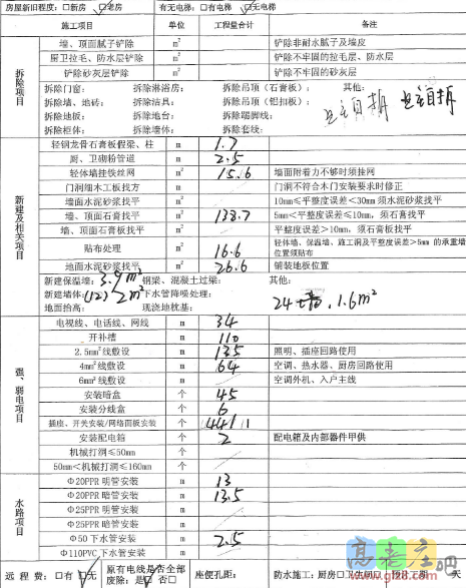 房屋新旧程度：□新房 ☑老房 有无电梯：□有电梯 ☑无电梯
施工项目 单位 工程量合计 备注
拆除项目
墙、顶面腻子铲除 m² 铲除非耐水腻子及墙皮
厨卫拉毛、防水层铲除 m² 铲除不牢固的拉毛层、防水层
铲除砂灰层铲除 m² 铲除不牢固的砂灰层
拆除门窗： 拆除淋浴房： 拆除吊顶（石膏板）： 其他：
拆除墙、地砖： 拆除洁具： 拆除吊顶（铝扣板）：
拆除地板： 拆除地台： 拆除踢脚线：
拆除柜体： 拆除墙体： 拆除套线：
业主自拆 业主自拆
新建及相关项目
轻钢龙骨石膏板假梁、柱 m 1.7
厨、卫砌粉管道 m 2.5
轻体墙挂铁丝网 m² 15.6 墙面附着力不够时须挂网
门洞细木工板找方 m 门洞不符合木门安装要求时修正
墙面水泥砂浆找平 m² 10mm≤平整度误差<30mm 须水泥砂浆找平
墙、顶面石膏找平 m² 138.7 5mm<平整度误差≤10mm，须石膏找平
墙、顶面石膏板找平 m² 平整度误差>10mm，须石膏板找平
贴布处理 m² 16.6 轻体墙、保温墙、施工洞及平整度误差>5mm 的承重墙位置须贴布
地面水泥砂浆找平 m² 26.6 铺装地板位置
新建保温墙：3.9m² 钢梁、混凝土过梁： 其他：
新建墙体：(12) 2m² 下水管降噪处理：
地面抬高： 现浇地枕基：
1.6m²
强、弱电项目
电视线、电话线、网线 m 34
开补槽 m 110
2.5mm²线敷设 m 135 照明、插座回路使用
4mm²线敷设 m 64 空调、热水器、厨房回路使用
6mm²线敷设 m 空调外机、入户主线
安装暗盒 个 45
安装分线盒 个 6
插座、开关安装/网络面板安装 个 44/1
安装配电箱 个 2 配电箱及内部器件甲供
机械打洞≤50mm 个
50mm<机械打洞≤160mm 个
水路项目
Φ20PPR 明管安装 m 13
Φ20PPR 暗管安装 m 13.5
Φ25PPR 明管安装 m
Φ25PPR 暗管安装 m
Φ50 下水管安装 m 2.5
Φ110PVC 下水管安装 m
远程费：□有 ☑无 原有电线是否全部废除：是☑ 否□ 座便孔距： 防水施工：厨房□ 卫生间□
高老庄吧